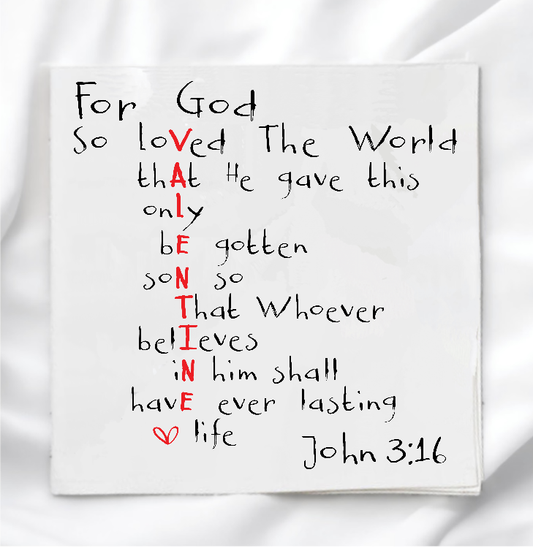 For God
So loVed The World
thAt He gave this
onLy
bE gotten
soN so
That Whoever
belIeves
iN him shall
havE ever lasting
life
John 3:16